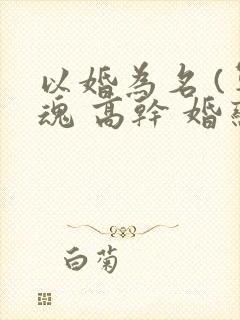 以婚為名(
魂 高幹 婚
白菊